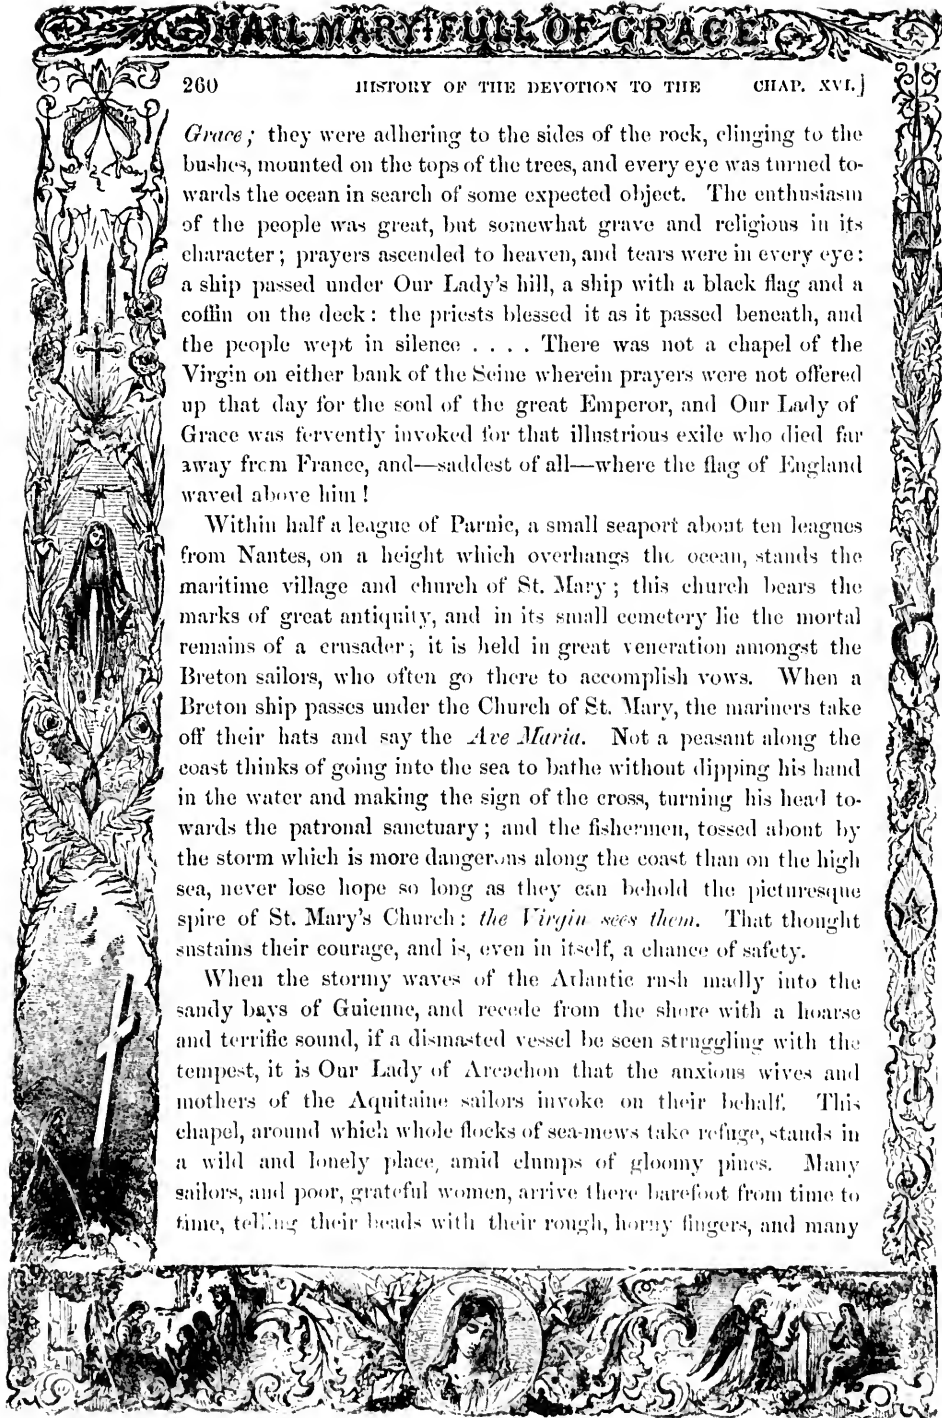 HAIL MARY FULL OF GRACE
260 HISTORY OF THE DEVOTION TO THE CHAP. XVI.]
Grace; they were adhering to the sides of the rock, clinging to the
bushes, mounted on the tops of the trees, and every eye was turned to-
wards the ocean in search of some expected object. The enthusiasm
of the people was great, but somewhat grave and religious in its
character; prayers ascended to heaven, and tears were in every eye:
a ship passed under Our Lady's hill, a ship with a black flag and a
coffin on the deck: the priests blessed it as it passed beneath, and
the people wept in silence . . . . There was not a chapel of the
Virgin on either bank of the Seine wherein prayers were not offered
up that day for the soul of the great Emperor, and Our Lady of
Grace was fervently invoked for that illustrious exile who died far
away from France, and—saddest of all—where the flag of England
waved above him!
Within half a league of Parnic, a small seaport about ten leagues
from Nantes, on a height which overhangs the ocean, stands the
maritime village and church of St. Mary; this church bears the
marks of great antiquity, and in its small cemetery lie the mortal
remains of a crusader; it is held in great veneration amongst the
Breton sailors, who often go there to accomplish vows. When a
Breton ship passes under the Church of St. Mary, the mariners take
off their hats and say the Ave Maria. Not a peasant along the
coast thinks of going into the sea to bathe without dipping his hand
in the water and making the sign of the cross, turning his head to-
wards the patronal sanctuary; and the fishermen, tossed about by
the storm which is more dangerous along the coast than on the high
sea, never lose hope so long as they can behold the picturesque
spire of St. Mary's Church: the Virgin sees them. That thought
sustains their courage, and is, even in itself, a chance of safety.
When the stormy waves of the Atlantic rush madly into the
sandy bays of Guienne, and recede from the shore with a hoarse
and terrific sound, if a dismasted vessel be seen struggling with the
tempest, it is Our Lady of Arcachon that the anxious wives and
mothers of the Aquitaine sailors invoke on their behalf. This
chapel, around which whole flocks of sea-mews take refuge, stands in
a wild and lonely place, amid clumps of gloomy pines. Many
sailors, and poor, grateful women, arrive there barefoot from time to
time, telling their beads with their rough, horny fingers, and many